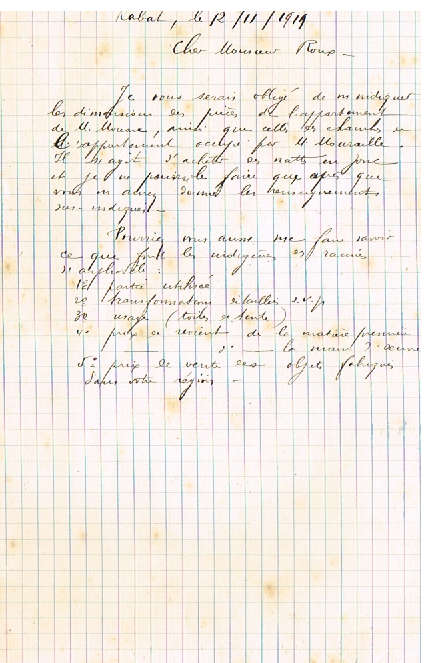 Rabat, le 12/11/1919
Cher Monsieur Roux -
Je vous serais obligé de m'indiquer
les dimensions des pièces de l'appartement
de M. , ainsi que celles des chambres de
l'appartement occupé par M.
Il s'agit d'achat de nattes en jonc
et je ne pourrai le faire que après que
vous m'aurez donné les renseignements
sus-indiqués -
Pourriez vous aussi me faire savoir
ce que font les indigènes des racines
d'asphodèle :
1° partie utilisée
2° transformations détaillées s.v.p.
3° usage (toiles de tente)
4° prix de revient de la matière première
d° — la main d'œuvre
5° prix de vente des objets fabriqués
dans votre région -